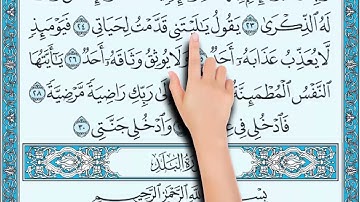 لَهُ ٱلذِّكْرَىٰ ٢٣ يَقُولُ يَـٰلَيْتَنِى قَدَّمْتُ لِحَيَاتِى ٢٤ فَيَوْمَئِذٍ
لَّا يُعَذِّبُ عَذَابَهُۥٓ أَحَدٌ وَلَا يُوثِقُ وَثَاقَهُۥٓ أَحَدٌ ٢٦ يَـٰٓأَيَّتُهَا
ٱلنَّفْسُ ٱلْمُطْمَئِنَّةُ إِلَىٰ رَبِّكِ رَاضِيَةً مَّرْضِيَّةً ٢٨
فَٱدْخُلِى فِى وَٱدْخُلِى جَنَّتِى ٣٠
ٱلْبَلَدِ
بِسْمِ ٱللَّهِ ٱلرَّحْمَـٰنِ ٱلرَّحِيمِ